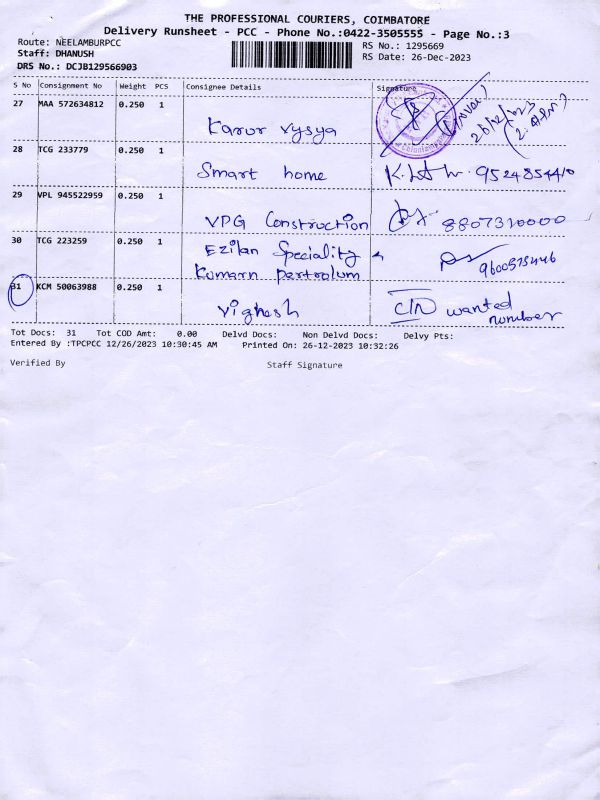 THE PROFESSIONAL COURIERS, COIMBATORE
Delivery Runsheet - PCC - Phone No.:0422-3505555 - Page No.:3
Route: NEELAMBURPCC
RS No.: 1295669
Staff: DHANUSH
RS Date: 26-Dec-2023
DRS No.: DCJB129566903
S No Consignment No Weight PCS Consignee Details Signature
27 MAA 572634812 0.250 1
Karur Vysya
26/12/2023
28 TCG 233779 0.250 1
Smart home 9524854410
29 VPL 945522959 0.250 1
VPG Construction 8807310000
30 TCG 223259 0.250 1
Ezilan Speciality
Kumarn pertrolum 9600575446
31 KCM 50063988 0.250 1
Vighesh wanted
number
Tot Docs: 31 Tot COD Amt: 0.00 Delvd Docs: Non Delvd Docs: Delvy Pts:
Entered By :TPCPCC 12/26/2023 10:30:45 AM Printed On: 26-12-2023 10:32:26
Verified By Staff Signature